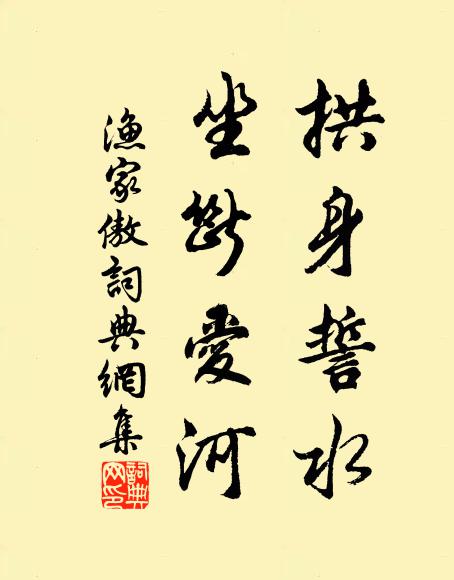 拱身誓水
坐斷愛河
漁家傲詞典網集
詞典網印